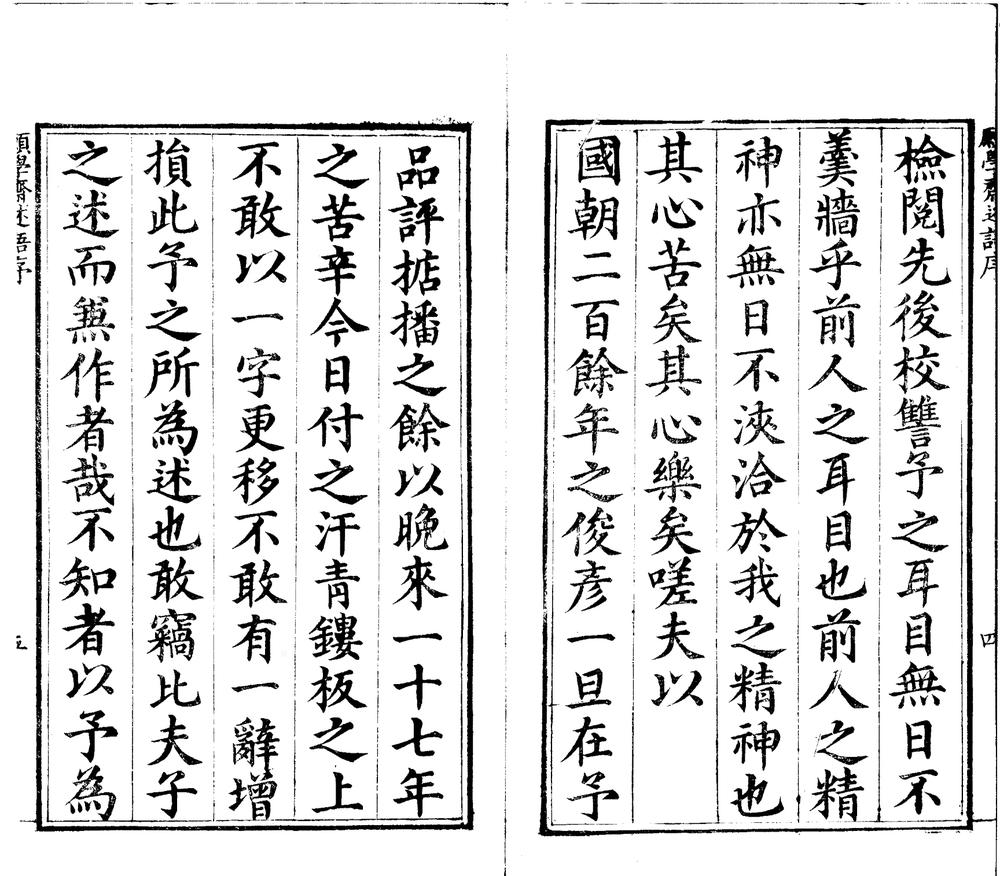 願學齋述語序
四
檢閱先後校讐予之耳目無日不
羹牆乎前人之耳目也前人之精
神亦無日不浹洽於我之精神也
其心苦矣其心樂矣嗟夫以
國朝二百餘年之俊彥一旦在予
品評掂播之餘以晚來一十七年
之苦辛今日付之汗青鏤板之上
不敢以一字更移不敢有一辭增
損此予之所為述也敢竊比夫子
之述而無作者哉不知者以予為
願學齋述語序
五